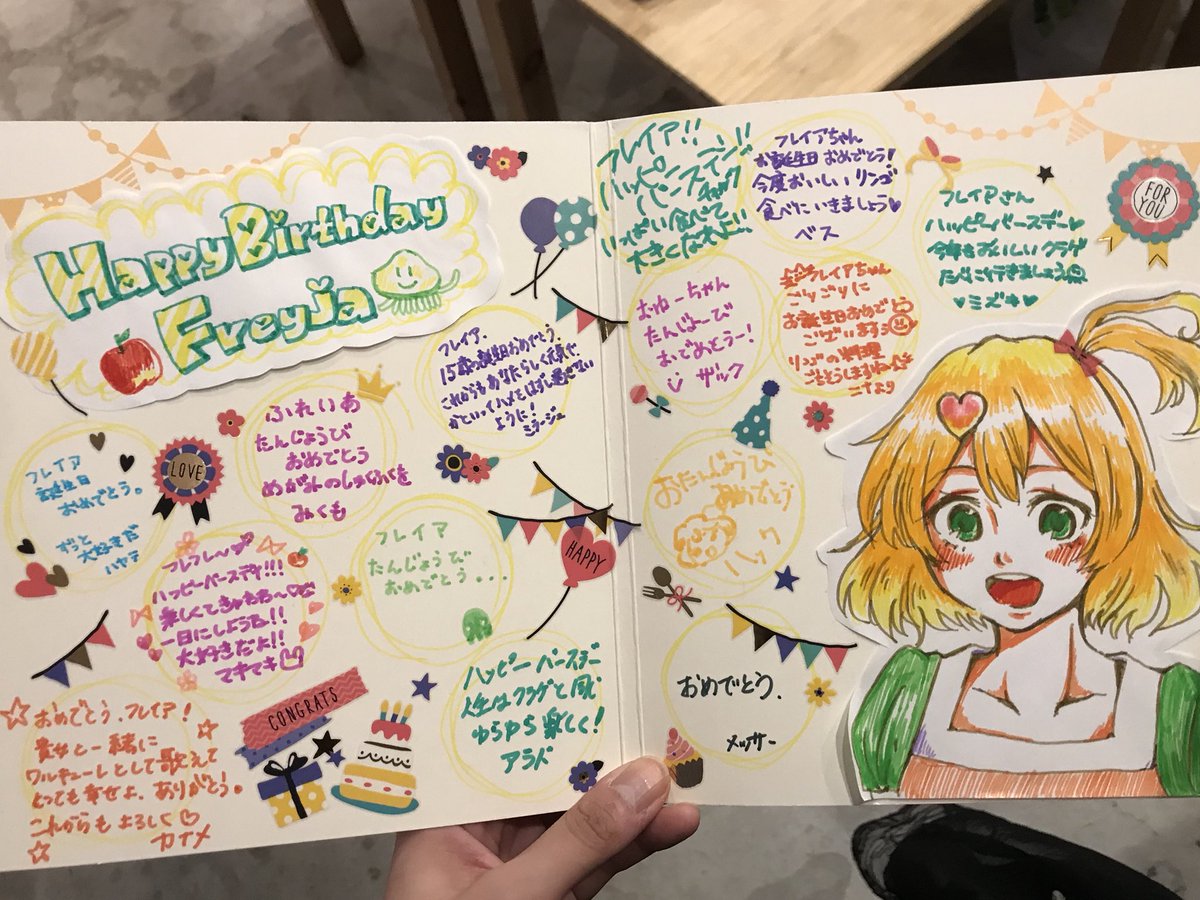 Happy Birthday
Freyja
フレイア
誕生日
おめでとう。
ずっと
大好きだ
ハヤテ
LOVE
ふれいあ
たんじょうび
おめでとう
フレイア.
15歳の誕生日おめでとう。
これからもあなたらしく元気で、
かといってハメをはずし過ぎない
ように!
ミラージュ
フレフレ〜
ハッピーバースデイ!!!
一日にしようね!!
大好きだよ!!
マキマキ
フレイア
たんじょうび
おめでとう...
HAPPY
おめでとう、フレイア!
貴女と一緒に
ワルキューレとして歌えて
とっても幸せよ、ありがとう。
これからもよろしく
カナメ
CONGRATS
ハッピーバースデー
人生はクラゲと同じ
ゆらゆら楽しく!
アラド
フレイア!!
いっぱい食べて
大きくなれよ!!
チャック
フレイアちゃん
お誕生日おめでとう!
今度おいしいリンゴ
食べにいきましょう♥
ベス
フレイアさん
ハッピーバースデー♥
今年もおいしいクラゲ
たべに行きましょう
♥ミズキ♥
FOR
YOU
たんじょーび
おめでとうー!
ザック
フレイアちゃん
お誕生日おめでとう
ございます
おたんじょうび
おめでとう
ハック
おめでとう.
メッサー